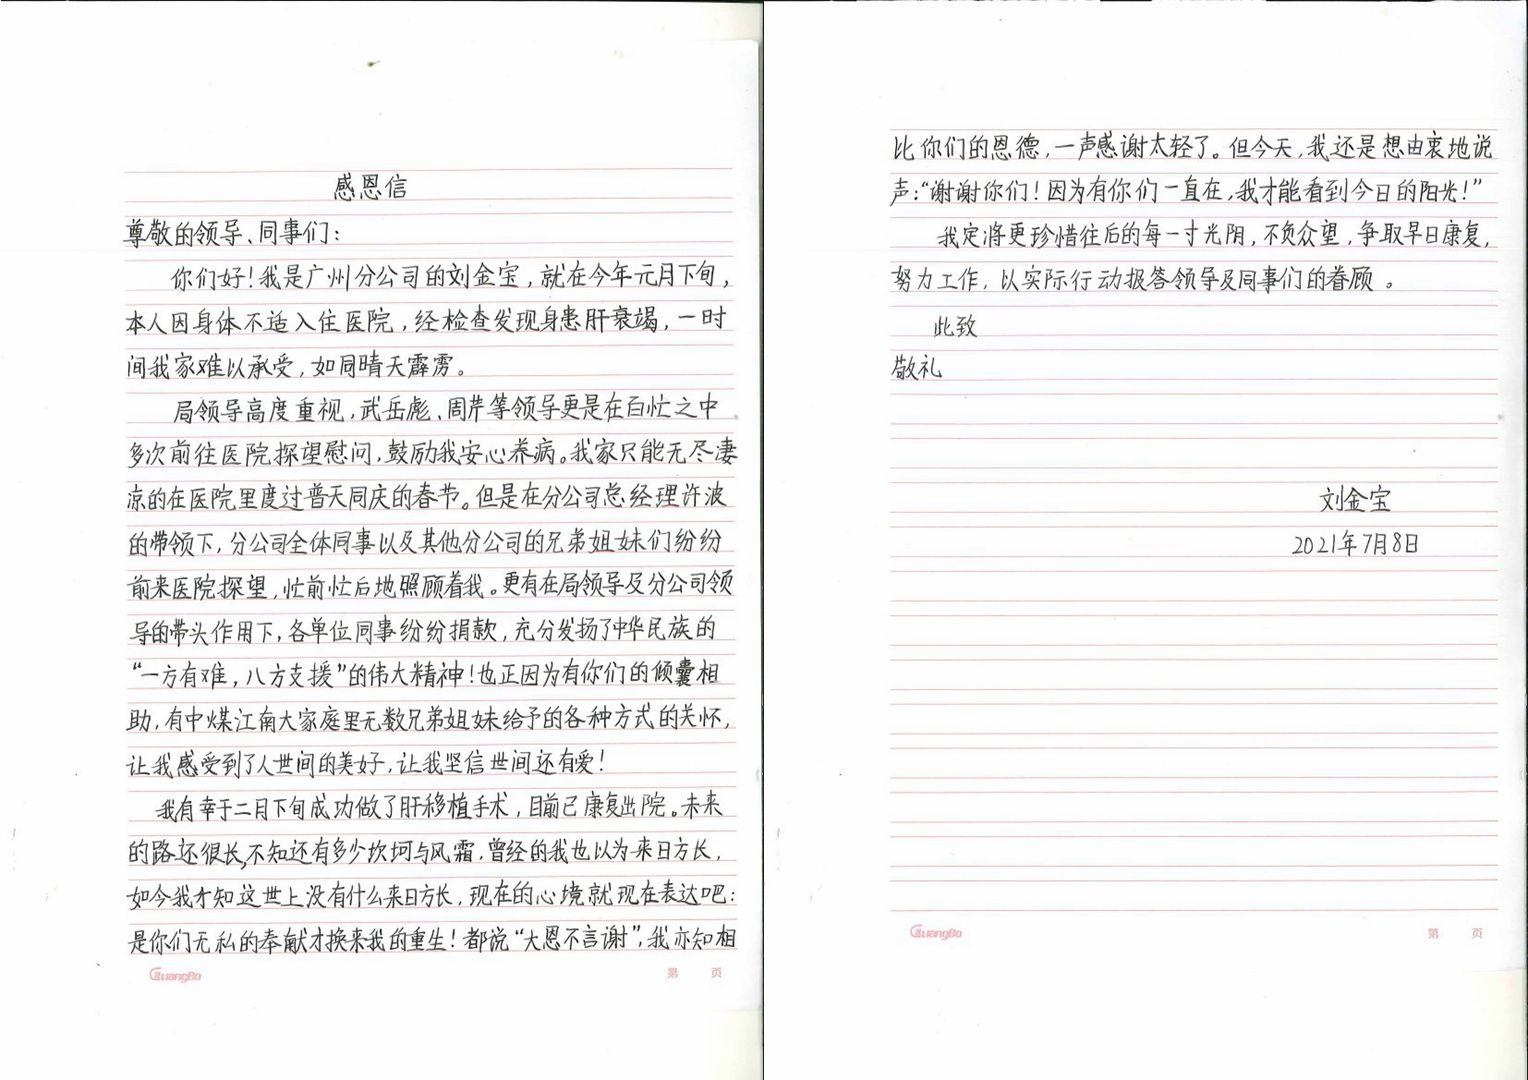 感恩信
尊敬的领导、同事们：
你们好！我是广州分公司的刘金宝，就在今年元月下旬，
本人因身体不适入住医院，经检查发现身患肝衰竭，一时
间我家难以承受，如同晴天霹雳。
局领导高度重视，武岳彪、周芹等领导更是在百忙之中
多次前往医院探望慰问，鼓励我安心养病。我家只能无尽凄
凉的在医院里度过普天同庆的春节。但是在分公司总经理许波
的带领下，分公司全体同事以及其他分公司的兄弟姐妹们纷纷
前来医院探望，忙前忙后地照顾着我。更有在局领导及分公司领
导的带头作用下，各单位同事纷纷捐款，充分发扬了中华民族的
“一方有难，八方支援”的伟大精神！也正因为有你们的倾囊相
助，有中煤江南大家庭里无数兄弟姐妹给予的各种方式的关怀，
让我感受到了人世间的美好，让我坚信世间还有爱！
我有幸于二月下旬成功做了肝移植手术，目前已康复出院。未来
的路还很长，不知还有多少坎坷与风霜，曾经的我也以为来日方长，
如今我才知这世上没有什么来日方长，现在的心境就现在表达吧：
是你们无私的奉献才换来我的重生！都说“大恩不言谢”，我亦知相
GuangBo
第 页
比你们的恩德，一声感谢太轻了。但今天，我还是想由衷地说
声：“谢谢你们！因为有你们一直在，我才能看到今日的阳光！”
我定将更珍惜往后的每一寸光阴，不负众望，争取早日康复，
努力工作，以实际行动报答领导及同事们的眷顾。
此致
敬礼
刘金宝
2021年7月8日
GuangBo
第 页